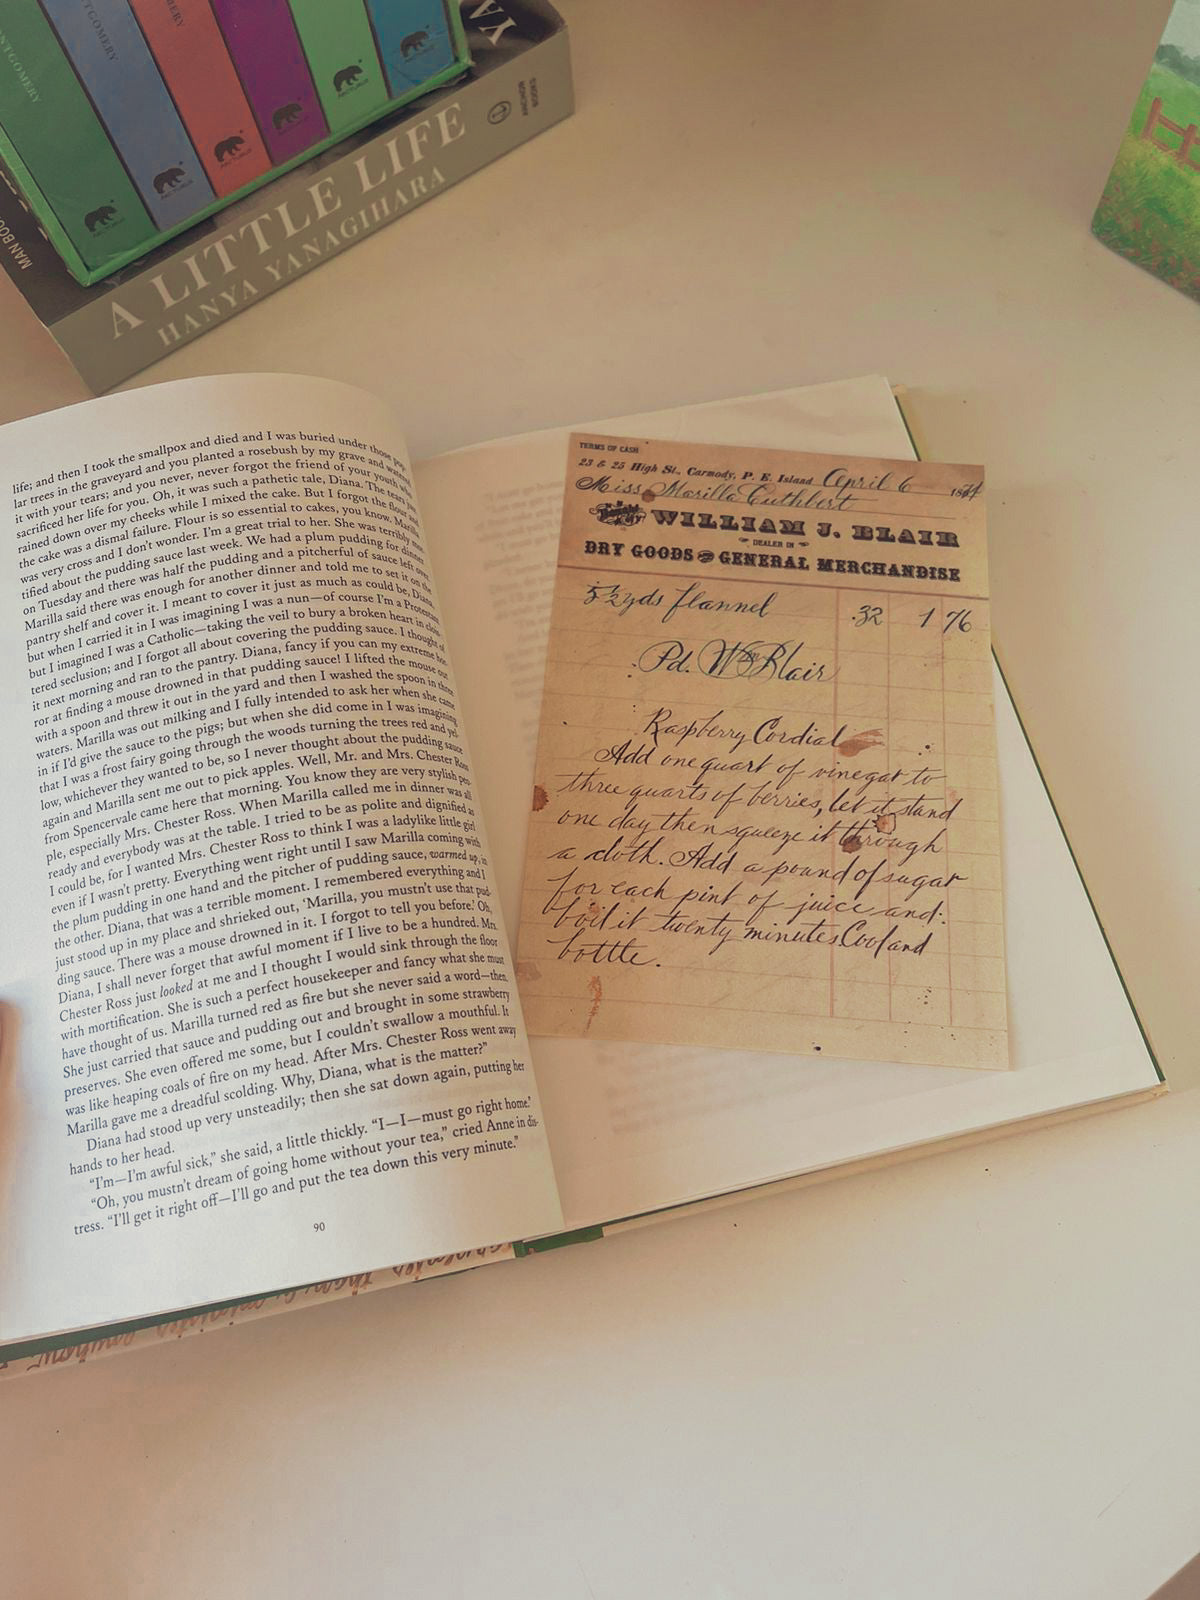 NTGOMERY
TGOMERY
MERY
ARCTURUS
ARCTURUS
ARCTURUS
A LITTLE LIFE
HANYA YANAGIHARA
MAN BOO
YA
ANCHOR
BOOKS
life; and then I took the smallpox and died and I was buried under those pop-
lar trees in the graveyard and you planted a rosebush by my grave and watered
it with your tears; and you never, never forgot the friend of your youth who
sacrificed her life for you. Oh, it was such a pathetic tale, Diana. The tears just
rained down over my cheeks while I mixed the cake. But I forgot the flour and
the cake was a dismal failure. Flour is so essential to cakes, you know. Marilla
was very cross and I don't wonder. I'm a great trial to her. She was terribly mor-
tified about the pudding sauce last week. We had a plum pudding for dinner
on Tuesday and there was half the pudding and a pitcherful of sauce left over.
Marilla said there was enough for another dinner and told me to set it on the
pantry shelf and cover it. I meant to cover it just as much as could be, Diana,
but when I carried it in I was imagining I was a nun—of course I'm a Protestant
but I imagined I was a Catholic—taking the veil to bury a broken heart in clois-
tered seclusion; and I forgot all about covering the pudding sauce. I thought of
it next morning and ran to the pantry. Diana, fancy if you can my extreme hor-
ror at finding a mouse drowned in that pudding sauce! I lifted the mouse out
with a spoon and threw it out in the yard and then I washed the spoon in three
waters. Marilla was out milking and I fully intended to ask her when she came
in if I'd give the sauce to the pigs; but when she did come in I was imagining
that I was a frost fairy going through the woods turning the trees red and yel-
low, whichever they wanted to be, so I never thought about the pudding sauce
again and Marilla sent me out to pick apples. Well, Mr. and Mrs. Chester Ross
from Spencervale came here that morning. You know they are very stylish peo-
ple, especially Mrs. Chester Ross. When Marilla called me in dinner was all
ready and everybody was at the table. I tried to be as polite and dignified as
I could be, for I wanted Mrs. Chester Ross to think I was a ladylike little girl
even if I wasn't pretty. Everything went right until I saw Marilla coming with
the plum pudding in one hand and the pitcher of pudding sauce, warmed up, in
the other. Diana, that was a terrible moment. I remembered everything and I
just stood up in my place and shrieked out, 'Marilla, you mustn't use that pud-
ding sauce. There was a mouse drowned in it. I forgot to tell you before.' Oh,
Diana, I shall never forget that awful moment if I live to be a hundred. Mrs.
Chester Ross just looked at me and I thought I would sink through the floor
with mortification. She is such a perfect housekeeper and fancy what she must
have thought of us. Marilla turned red as fire but she never said a word—then.
She just carried that sauce and pudding out and brought in some strawberry
preserves. She even offered me some, but I couldn't swallow a mouthful. It
was like heaping coals of fire on my head. After Mrs. Chester Ross went away
Marilla gave me a dreadful scolding. Why, Diana, what is the matter?"
Diana had stood up very unsteadily; then she sat down again, putting her
hands to her head.
"I'm—I'm awful sick," she said, a little thickly. "I—I—must go right home."
"Oh, you mustn't dream of going home without your tea," cried Anne in dis-
tress. "I'll get it right off—I'll go and put the tea down this very minute."
90
TERMS OF CASH
23 & 25 High St., Carmody, P. E. Island April 6 18
Miss Marilla Cuthbert
WILLIAM J. BLAIR
DEALER IN
DRY GOODS GENERAL MERCHANDISE
5½ yds flannel .32 1 76
Pd. Wm Blair
Raspberry Cordial
Add one quart of vinegar to
three quarts of berries, let it stand
one day then squeeze it through
a cloth. Add a pound of sugar
for each pint of juice and
boil it twenty minutes Cool and
bottle.